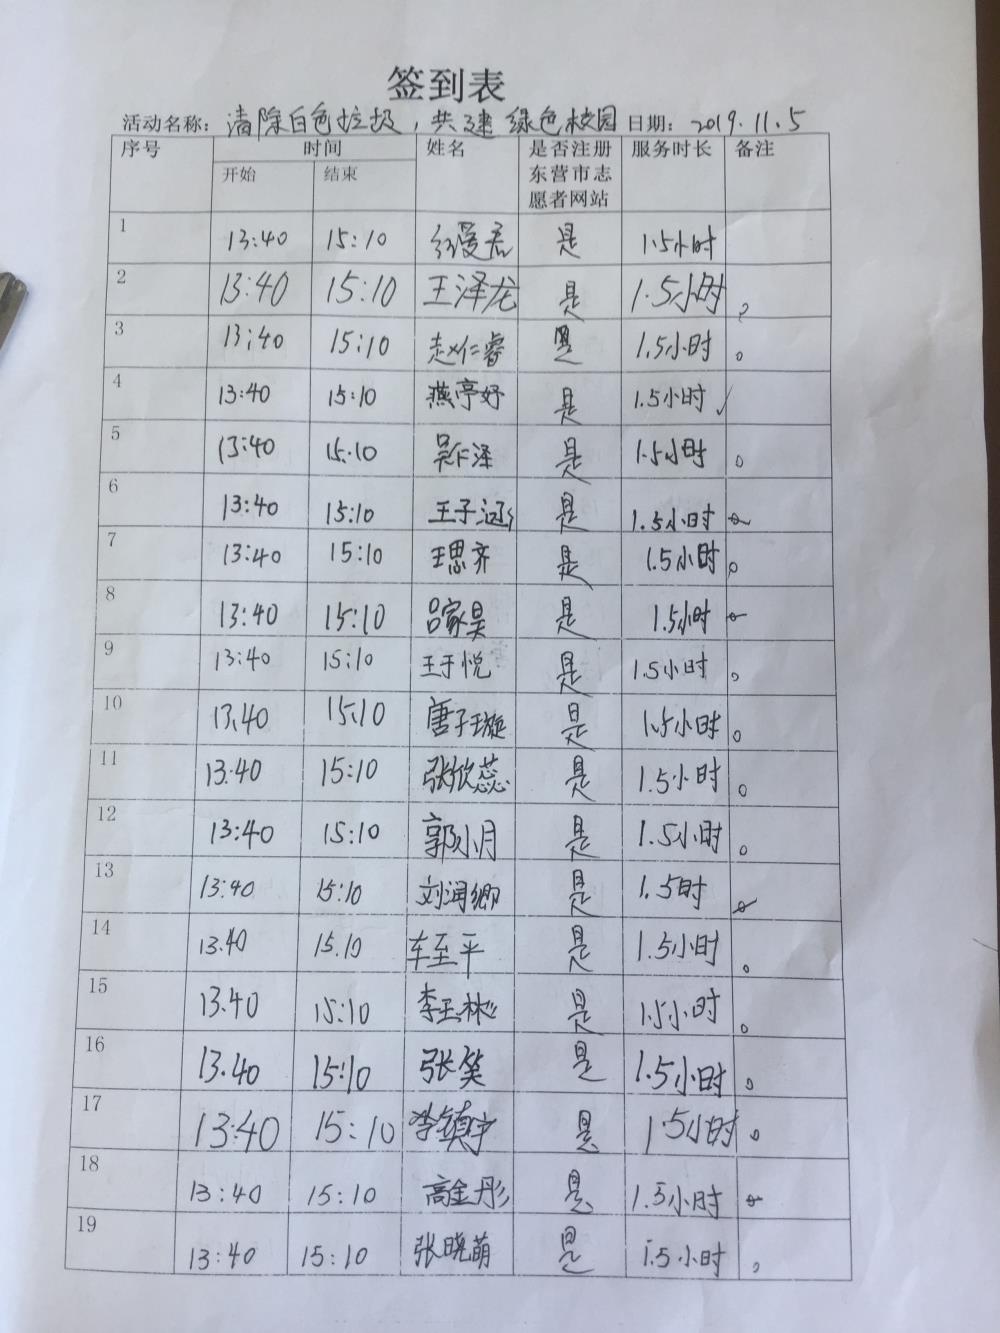 签到表
活动名称：清除白色垃圾，共建绿色校园 日期：2019.11.5
序号 时间 姓名 是否注册东营市志愿者网站 服务时长 备注
开始 结束
1 13:40 15:10 是 1.5小时
2 13:40 15:10 王泽龙 是 1.5小时 。
3 13:40 15:10 赵仁睿 是 1.5小时 。
4 13:40 15:10 燕亭妤 是 1.5小时 ✓
5 13:40 15:10 是 1.5小时 。
6 13:40 15:10 王子涵 是 1.5小时
7 13:40 15:10 王思齐 是 1.5小时 。
8 13:40 15:10 吕家昊 是 1.5小时
9 13:40 15:10 王于悦 是 1.5小时 。
10 13:40 15:10 唐子璇 是 1.5小时 。
11 13:40 15:10 张欣蕊 是 1.5小时 。
12 13:40 15:10 郭小月 是 1.5小时 。
13 13:40 15:10 刘润卿 是 1.5时
14 13.40 15.10 车至平 是 1.5小时 。
15 13.40 15:10 李玉彬 是 1.5小时 。
16 13.40 15:10 张笑 是 1.5小时 。
17 13:40 15:10 李镇宇 是 1.5小时 。
18 13:40 15:10 高金彤 是 1.5小时
19 13:40 15:10 张晓萌 是 1.5小时 。